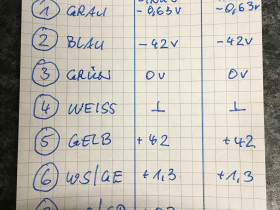 ① GRAU -0,63V -0,63V
② BLAU -42V -42V
③ GRÜN 0V 0V
④ WEISS ⊥ ⊥
⑤ GELB +42 +42
⑥ WS/GE +1,3 +1,3